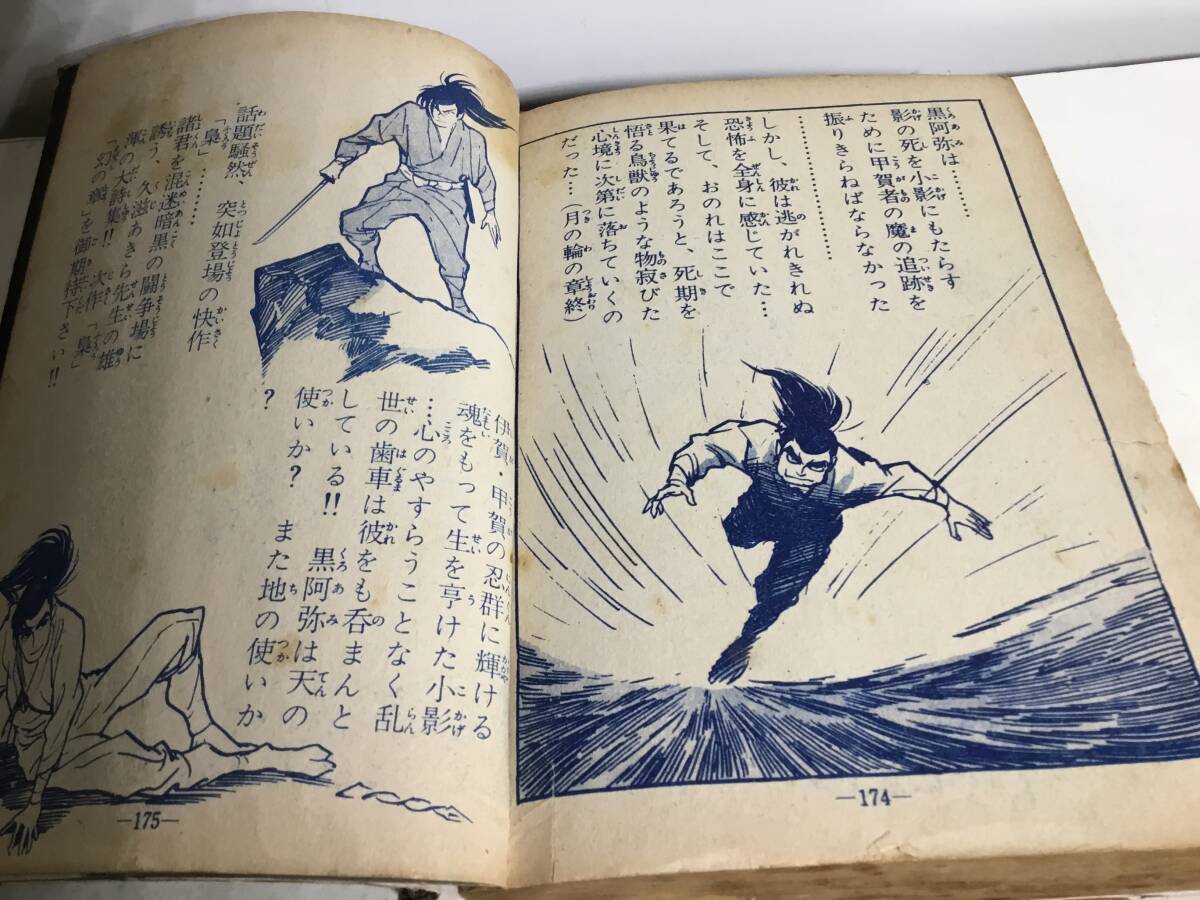 黒阿弥は………
影の死を小影にもたらす
ために甲賀者の魔の追跡を
振りきらねばならなかった
………………
しかし、彼は逃がれきれぬ
恐怖を全身に感じていた…
そして、おのれはここで
果てるであろうと、死期を
悟る鳥獣のような物寂びた
心境に次第に落ちていくの
だった…(月の輪の章終)
—174—
伊賀・甲賀の忍群に輝ける
魂をもって生を享けた小影
…心のやすらうことなく乱
世の歯車は彼をも呑まんと
している!! 黒阿弥は天の
使いか? また地の使いか
?
話題騒然、突如登場の快作
「梟」………
諸君を混迷暗黒の闘争場に
誘う、久滋あきら先生の雄
渾の大詩集!! 次作「梟」
「幻の章」を御期待下さい!!
—175—